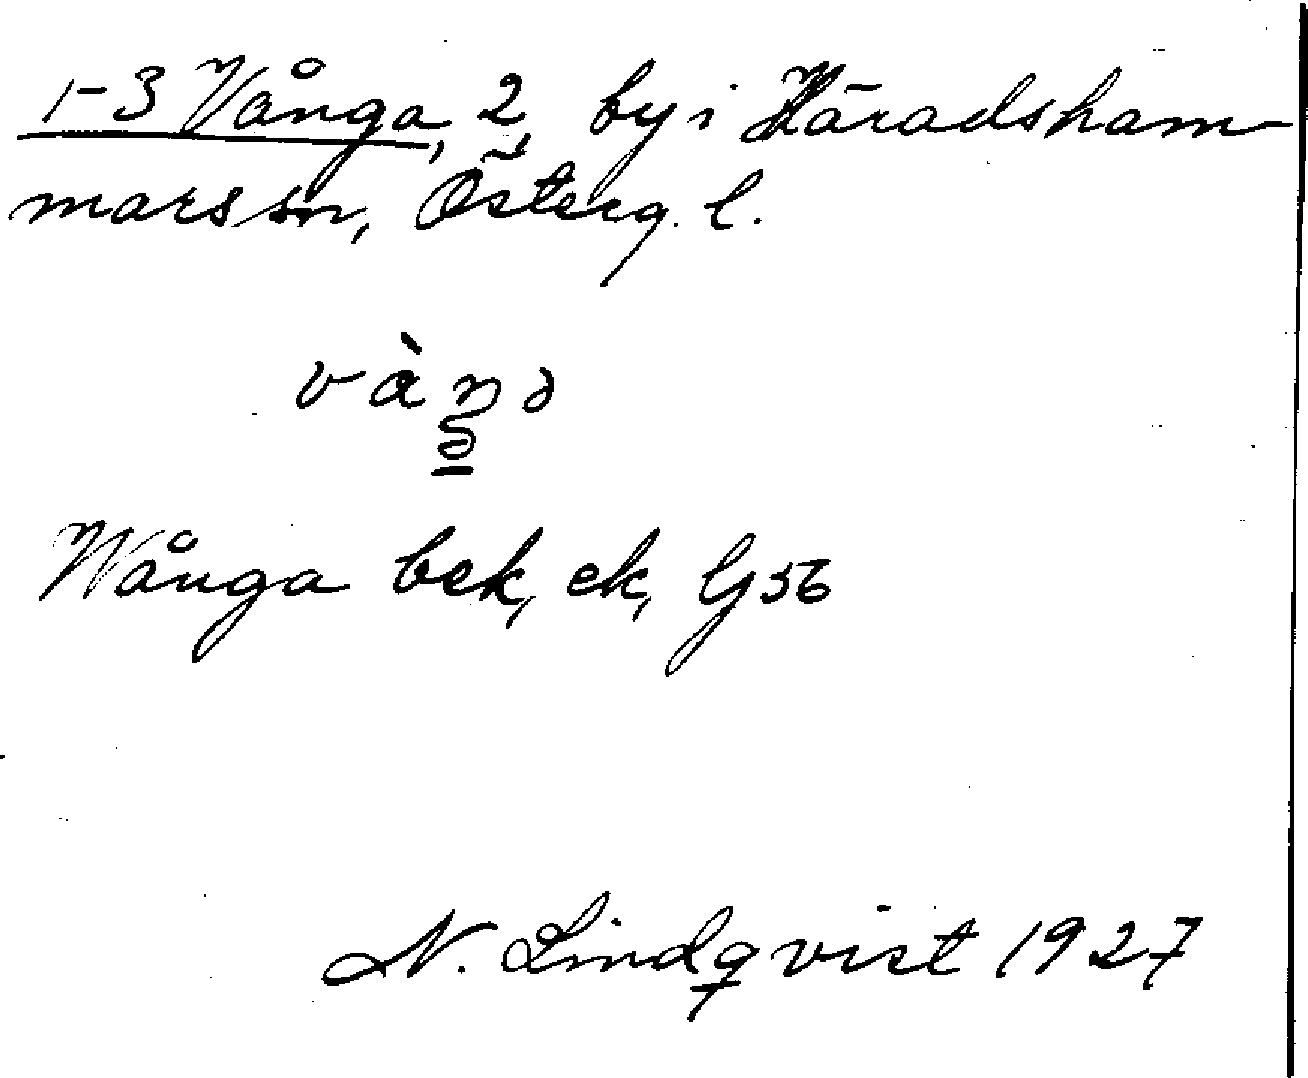 1-3 Vånga, 2, by i Häradsham-
mars sn, Österg. l.
vàŋə
Wånga bek, ek, G56
N. Lindqvist 1927